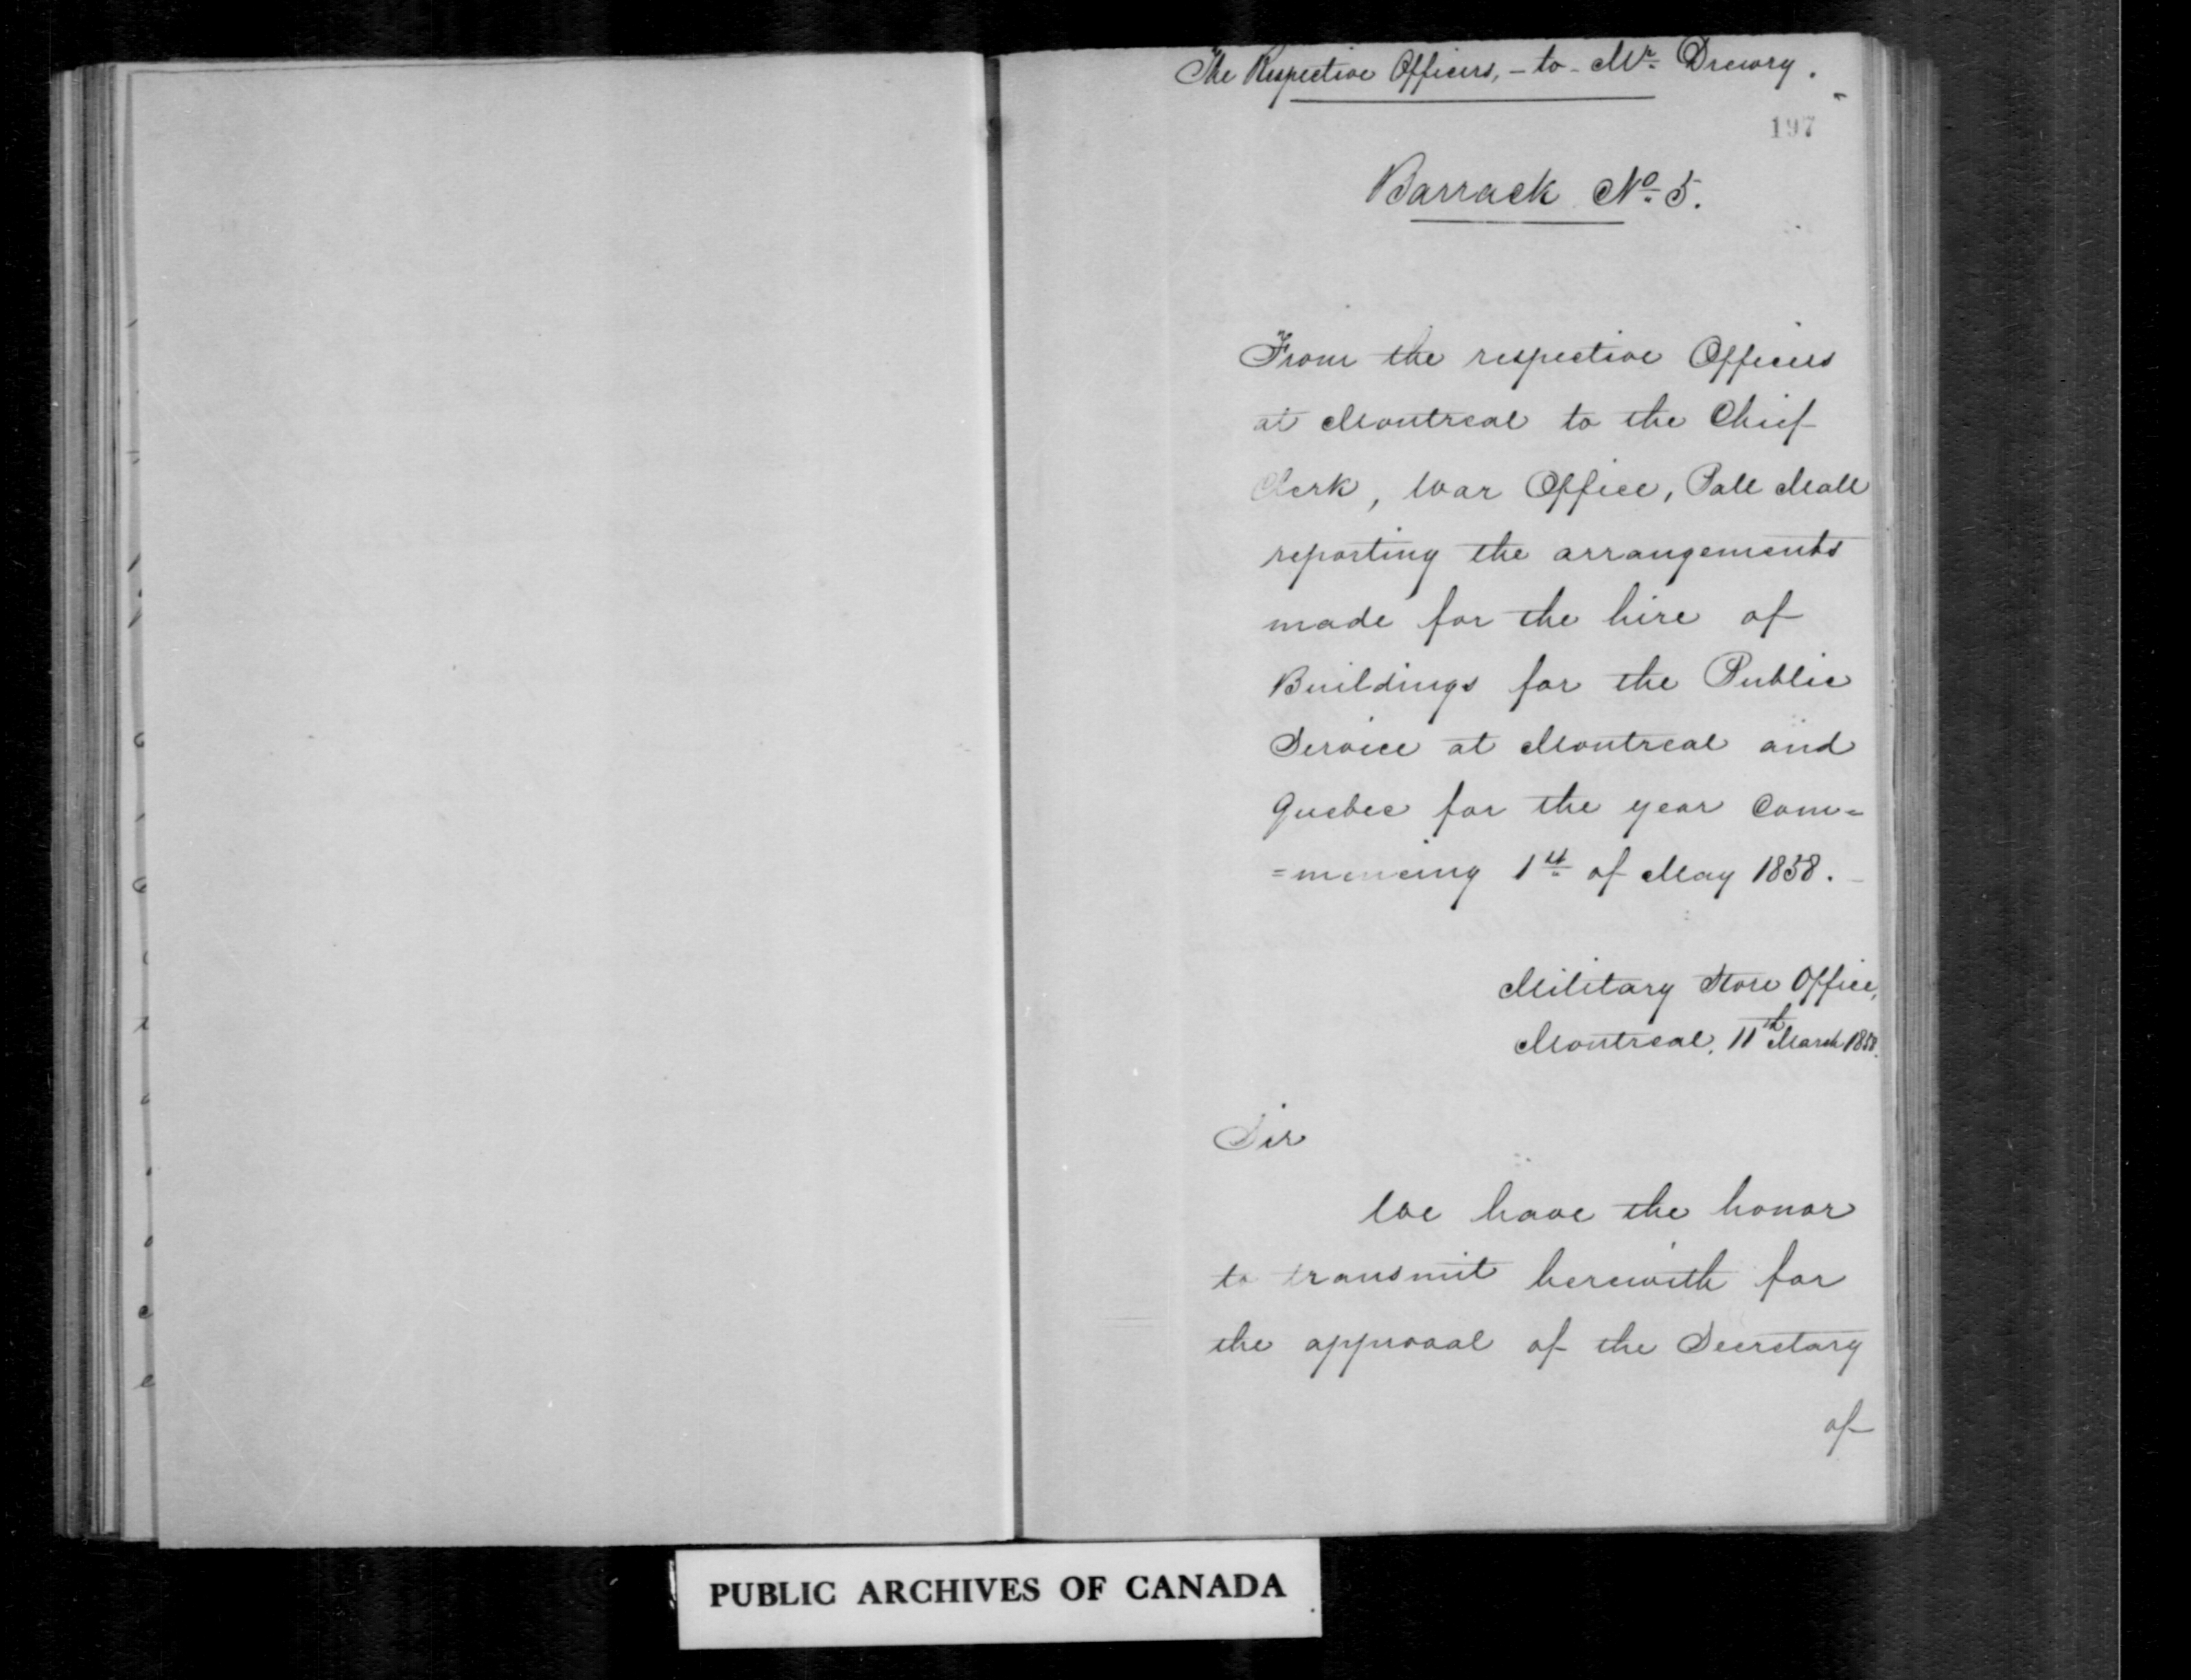 The Respective Officers, - to - Mr. Drewry.
197
Barrack No. 5.
From the respective Officers
at Montreal to the Chief
Clerk, War Office, Pall Mall
reporting the arrangements
made for the hire of
Buildings for the Public
Service at Montreal and
Quebec for the year Com=
=mencing 1st of May 1858.
Military Store Office,
Montreal, 11th March 1858.
Sir
We have the honor
to transmit herewith for
the approval of the Secretary
of
PUBLIC ARCHIVES OF CANADA